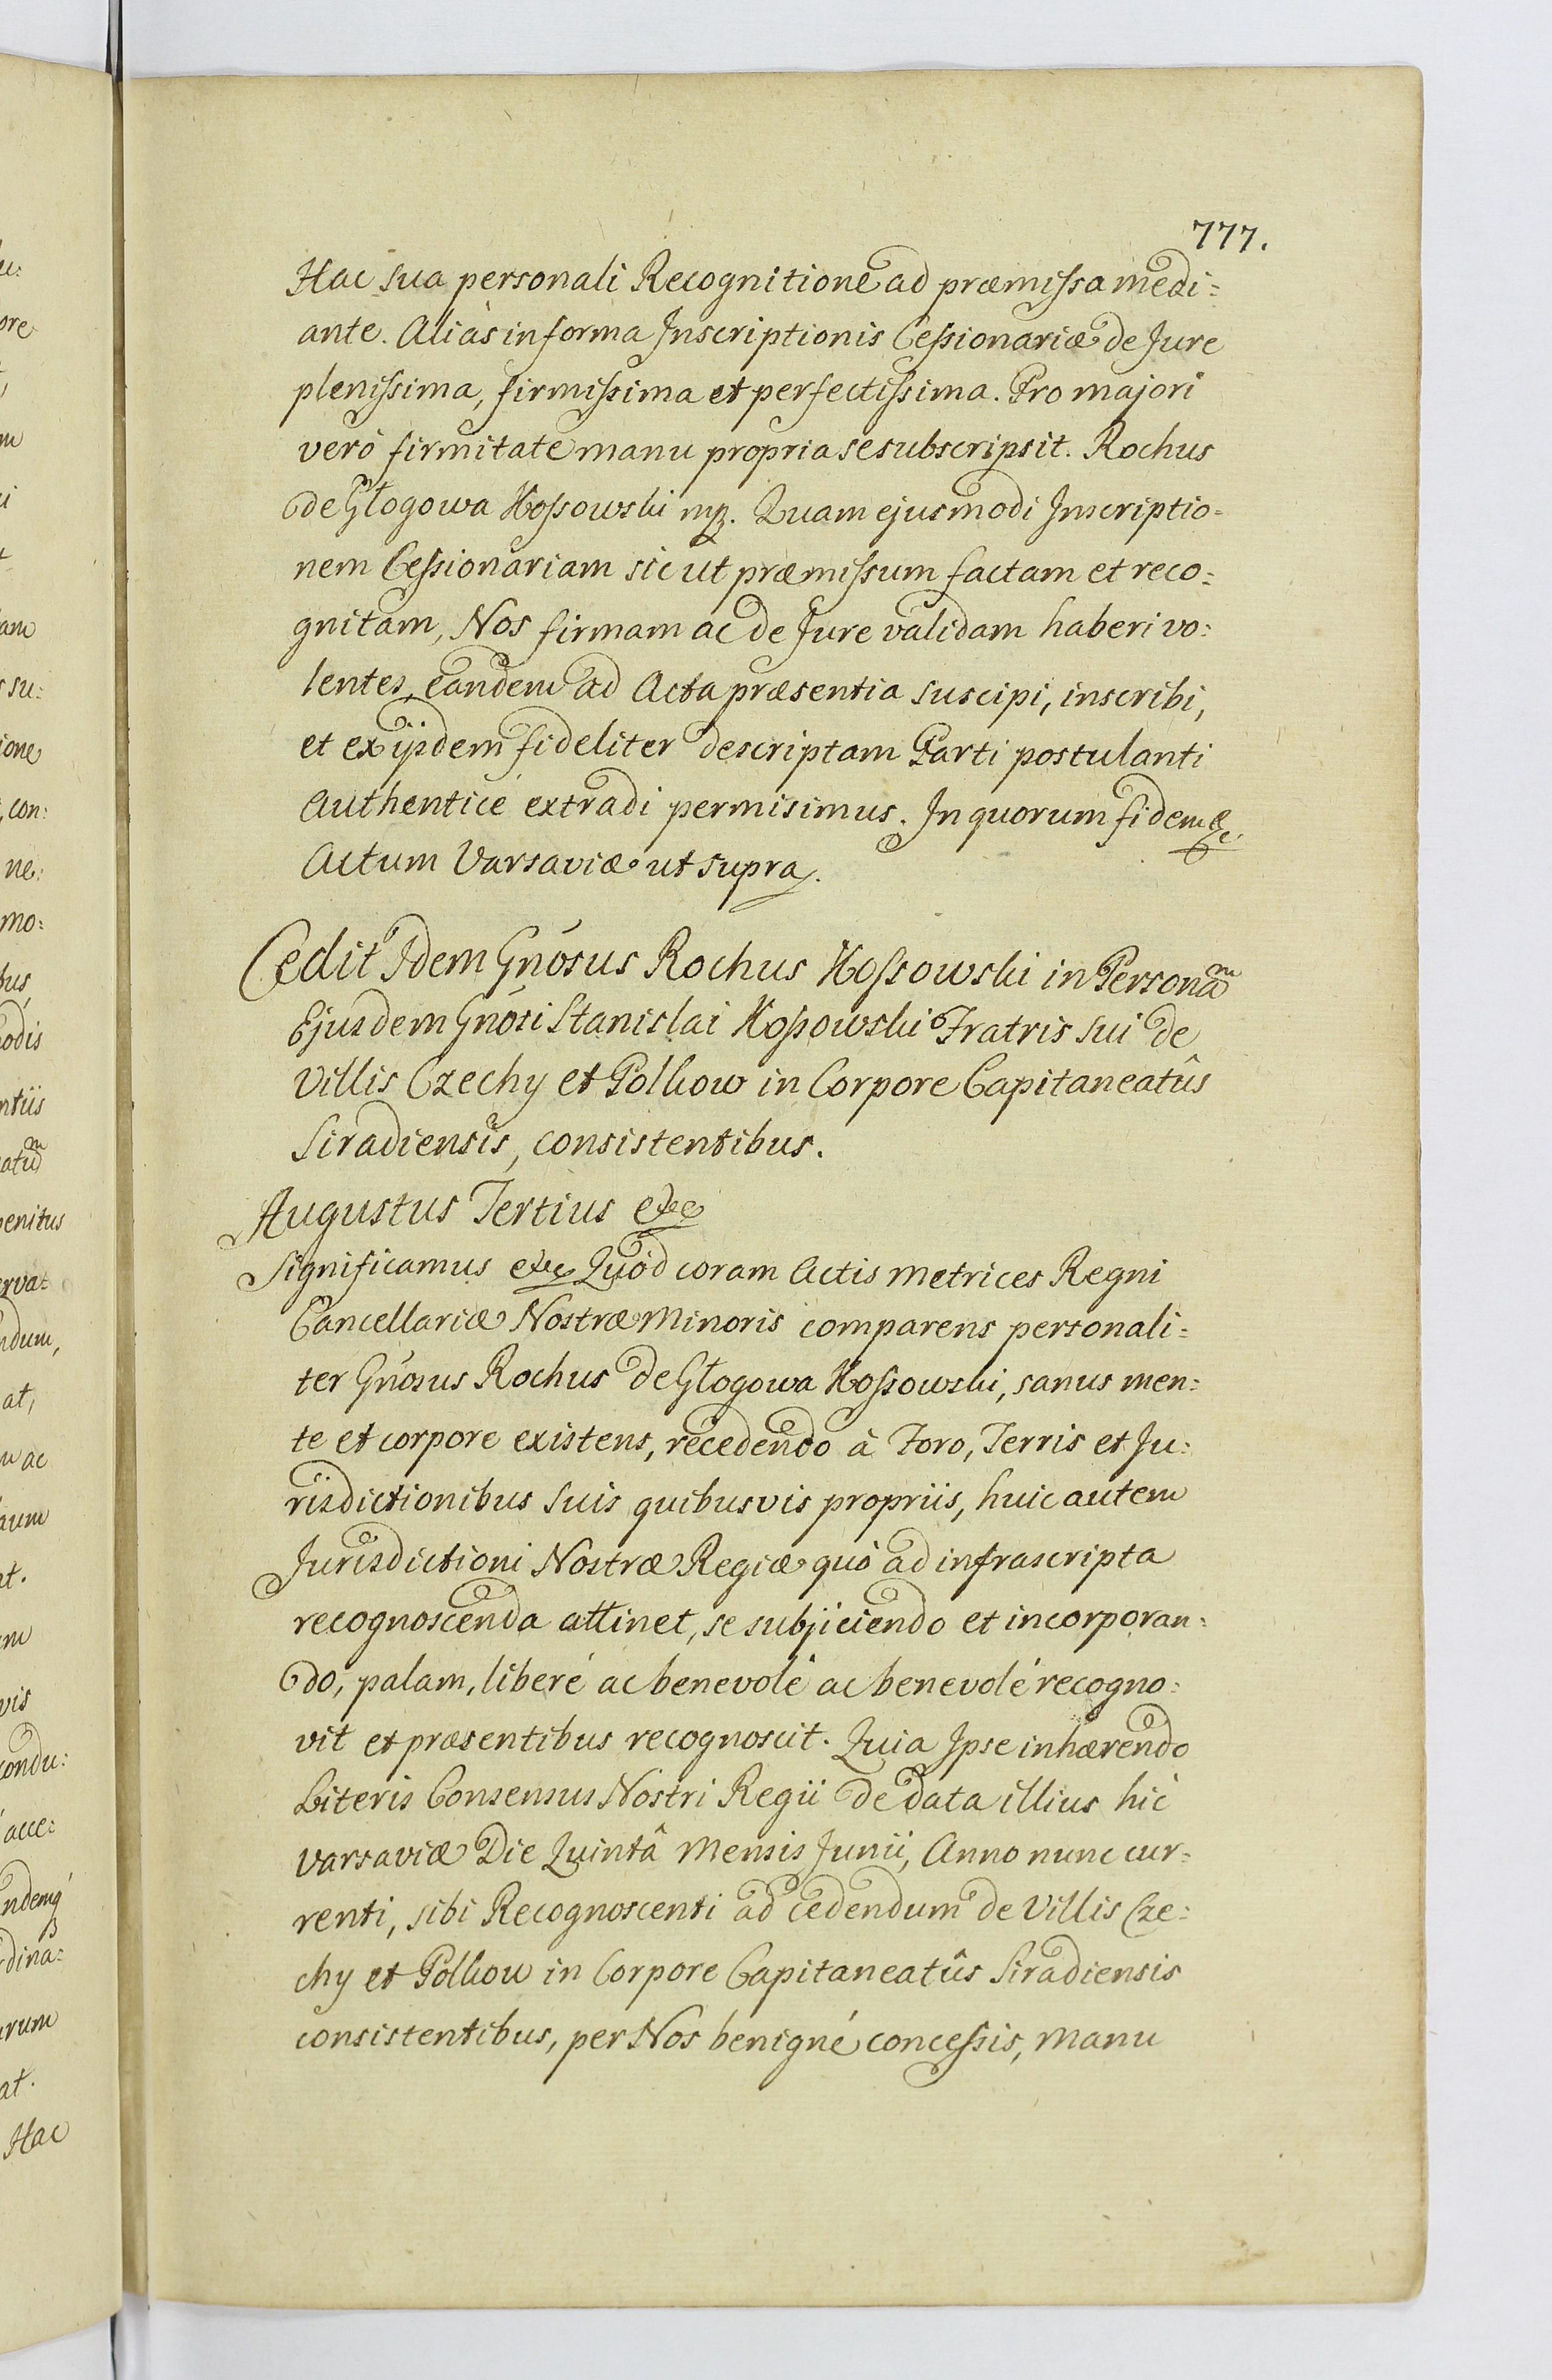 777.
Hac sua personali Recognitione ad præmissa medi=
ante. Aliàs in forma Inscriptionis Cessionariæ de Jure
plenissima, firmissima et perfectissima. Pro majori
verò firmitate manu propria se subscripsit. Rochus
de Głogowa Kossowski mp. Quam ejusmodi Inscriptio=
nem Cessionariam sic ut præmissum factam et reco=
gnitam, Nos firmam ac de Jure validam haberi vo=
lentes, eandem ad Acta præsentia suscipi, inscribi,
et ex ijsdem fideliter descriptam Parti postulanti
authenticè extradi permisimus. In quorum fidem &c
Actum Varsaviæ ut supra.
Cedit Idem Gnosus Rochus Kossowski in Personam
Ejusdem Gnosi Stanislai Kossowski Fratris sui de
Villis Czechy et Polkow in Corpore Capitaneatûs
Siradiensis, consistentibus.
Augustus Tertius etc
Significamus etc Quòd coram Actis metrices Regni
Cancellariæ Nostræ Minoris comparens personali=
ter Gnosus Rochus de Głogowa Kossowski, sanus men=
te et corpore existens, recedendo à Foro, Terris et Ju=
risdictionibus suis quibusvis propriis, huic autem
Jurisdictioni Nostræ Regiæ quò ad infrascripta
recognoscenda attinet, se subjiciendo et incorporan=
do, palam, liberè ac benevolè ac benevolè recogno=
vit et præsentibus recognoscit. Quia Ipse inhærendo
Literis Consensus Nostri Regii de data illius hìc
Varsaviæ Die Quintâ Mensis Junii, Anno nunc cur=
renti, sibi Recognoscenti ad cedendum de Villis Cze=
chy et Polkow in Corpore Capitaneatûs Siradiensis
consistentibus, per Nos benignè concessis, manu